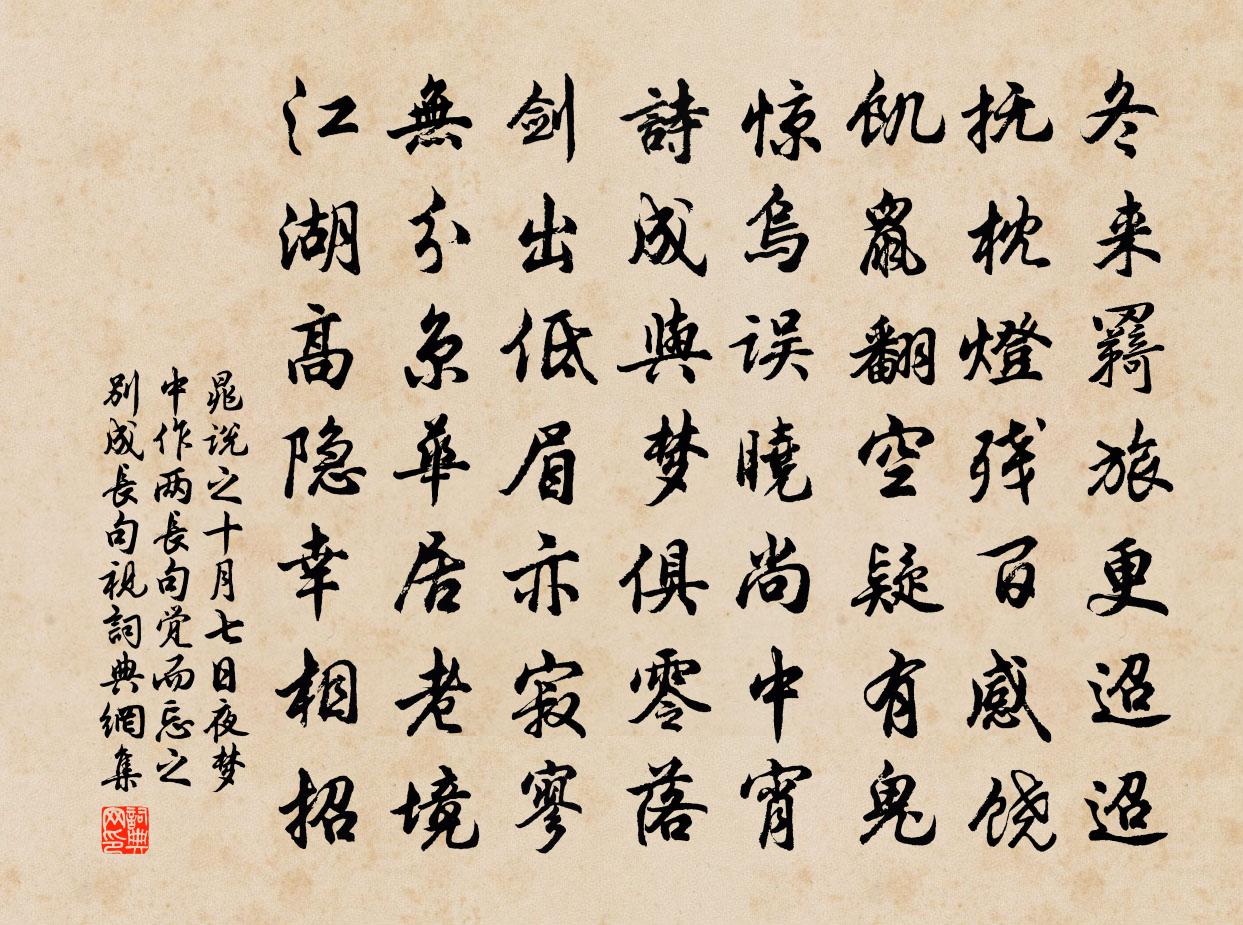 冬来羇旅更迢迢
抚枕燈残百感饶
飢鼠翻空疑有鬼
惊烏误曉尚中宵
詩成與梦俱零落
剑出低眉亦寂寥
無分京華居老境
江湖高隐幸相招
晁说之十月七日夜梦
中作两長句觉而忘之
别成長句視詞典網集
詞典
网印